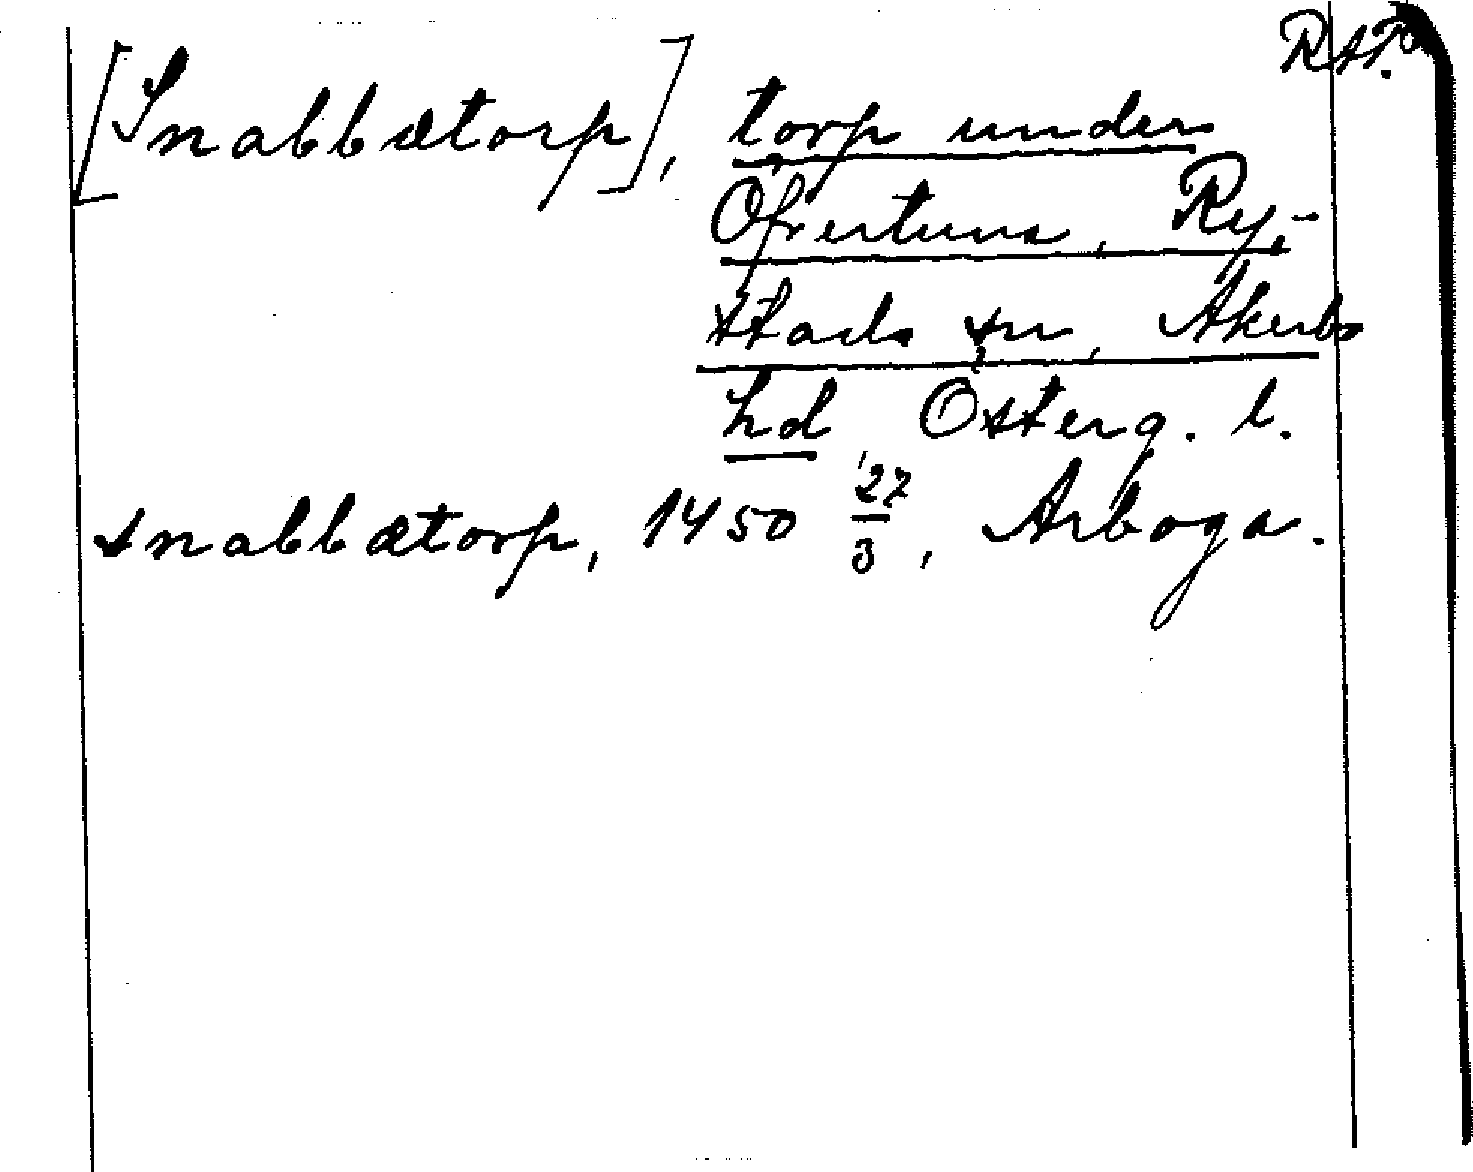 RAP.
[Snabbætorp], torp under
Öfvertuna, Ry-
stads sn, Åkerbo
hd, Österg. l.
snabbætorp, 1450 27/3, Arboga.